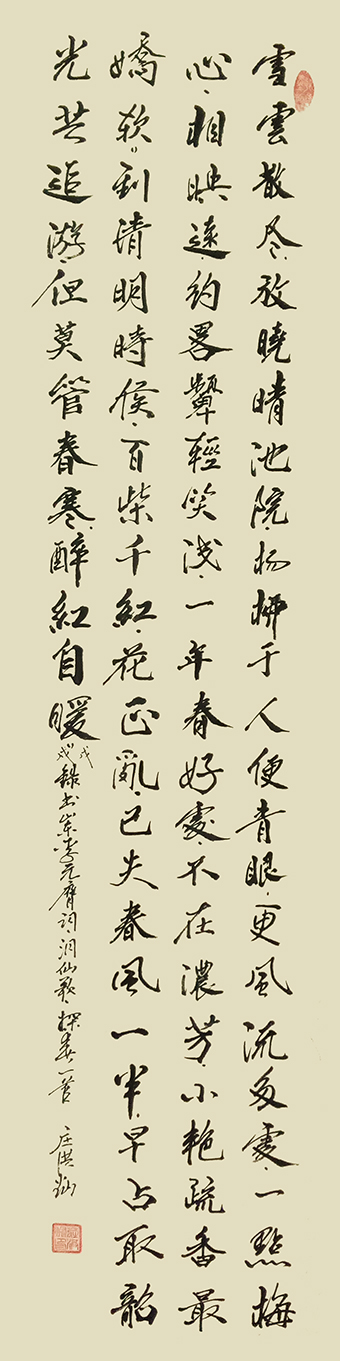 雪雲散尽放曉晴池院杨柳于人便青眼更風流多處一點梅
心相映遠約畧顰輕笑浅一年春好處不在濃芳小艳疏香最
嬌軟到清明時候百紫千紅花正亂已失春風一半早占取韶
光共追游但莫管春寒醉紅自暖
戊戌錄书宋李元膺詞洞仙歌探春一首 庄洪灿